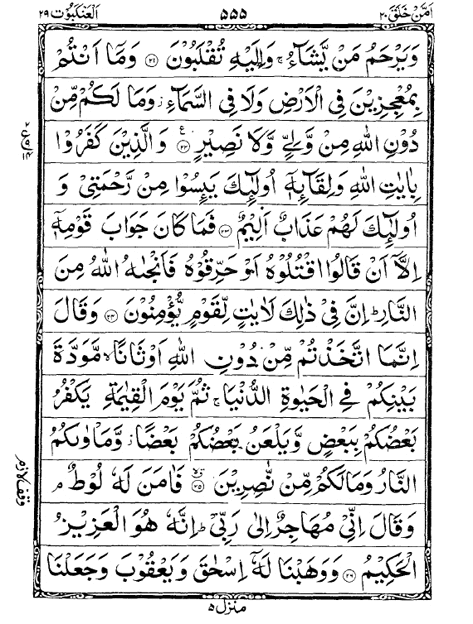 اَمَّنْ خَلَقَ ٢٠ ٥٥٥ اَلْعَنْكَبُوْت ٢٩
وَيَرْحَمُ مَنْ يَّشَآءُ ۚ وَاِلَيْهِ تُقْلَبُوْنَ ﴿٢١﴾ وَمَآ اَنْتُمْ
بِمُعْجِزِيْنَ فِى الْاَرْضِ وَلَا فِى السَّمَآءِ ۫ وَمَا لَكُمْ مِّنْ
دُوْنِ اللّٰهِ مِنْ وَّلِىٍّ وَّلَا نَصِيْرٍ ﴿٢٢﴾ ع وَالَّذِيْنَ كَفَرُوْا
بِاٰيٰتِ اللّٰهِ وَلِقَآئِهٖٓ اُولٰٓئِكَ يَئِسُوْا مِنْ رَّحْمَتِىْ وَ
اُولٰٓئِكَ لَهُمْ عَذَابٌ اَلِيْمٌ ﴿٢٣﴾ فَمَا كَانَ جَوَابَ قَوْمِهٖٓ
اِلَّآ اَنْ قَالُوا اقْتُلُوْهُ اَوْ حَرِّقُوْهُ فَاَنْجٰىهُ اللّٰهُ مِنَ
النَّارِ ؕ اِنَّ فِىْ ذٰلِكَ لَاٰيٰتٍ لِّقَوْمٍ يُّؤْمِنُوْنَ ﴿٢٤﴾ وَقَالَ
اِنَّمَا اتَّخَذْتُمْ مِّنْ دُوْنِ اللّٰهِ اَوْثَانًا ۙ مَّوَدَّةَ
بَيْنِكُمْ فِى الْحَيٰوةِ الدُّنْيَا ۚ ثُمَّ يَوْمَ الْقِيٰمَةِ يَكْفُرُ
بَعْضُكُمْ بِبَعْضٍ وَّيَلْعَنُ بَعْضُكُمْ بَعْضًا ۫ وَّمَاْوٰىكُمُ
النَّارُ وَمَا لَكُمْ مِّنْ نّٰصِرِيْنَ ﴿٢٥﴾ فَاٰمَنَ لَهٗ لُوْطٌ ۘ
وَقَالَ اِنِّىْ مُهَاجِرٌ اِلٰى رَبِّىْ ؕ اِنَّهٗ هُوَ الْعَزِيْزُ
الْحَكِيْمُ ﴿٢٦﴾ وَوَهَبْنَا لَهٗٓ اِسْحٰقَ وَيَعْقُوْبَ وَجَعَلْنَا
منزل ٥